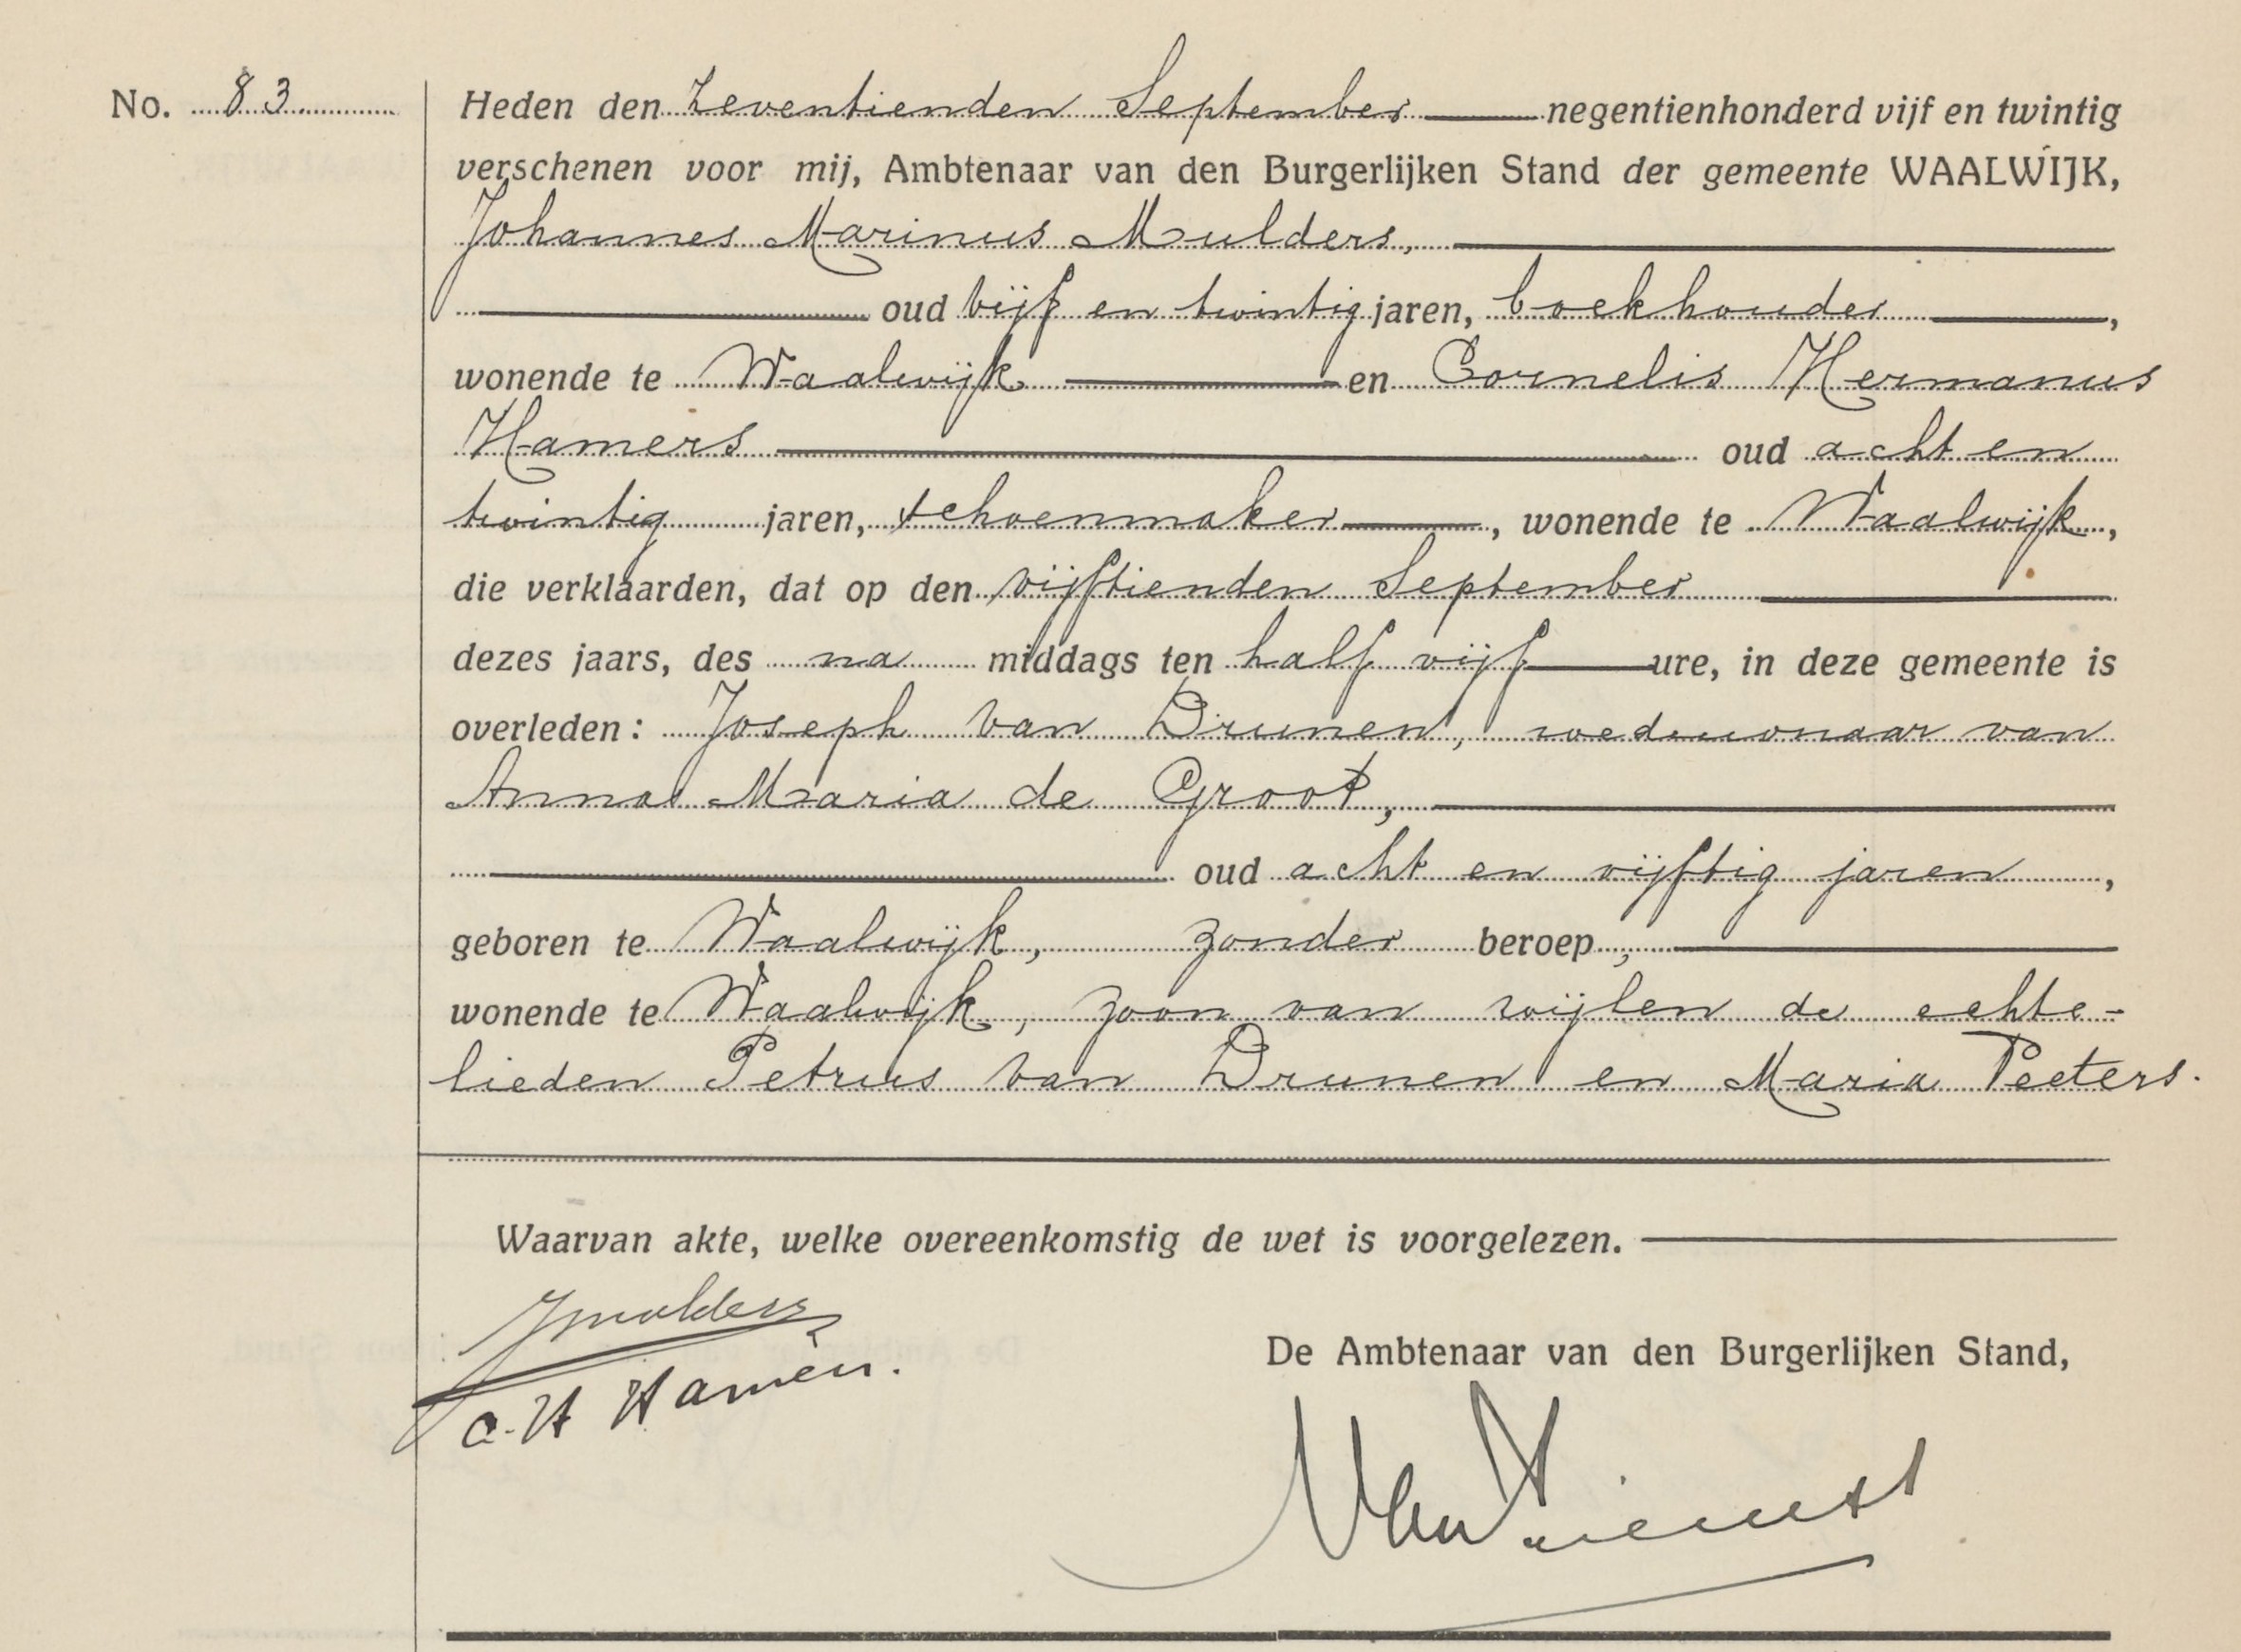 No. 83
Heden den zeventienden September negentienhonderd vijf en twintig
verschenen voor mij, Ambtenaar van den Burgerlijken Stand der gemeente WAALWIJK,
Johannes Marinus Mulders,
oud vijf en twintig jaren, boekhouder,
wonende te Waalwijk en Cornelis Hermanus
Hamers oud acht en
twintig jaren, schoenmaker, wonende te Waalwijk,
die verklaarden, dat op den vijftienden September
dezes jaars, des na middags ten half vijf ure, in deze gemeente is
overleden: Joseph van Drunen, weduwnaar van
Anna Maria de Groot,
oud acht en vijftig jaren,
geboren te Waalwijk, zonder beroep,
wonende te Waalwijk, zoon van wijlen de echte-
lieden Petrus van Drunen en Maria Peeters.
Waarvan akte, welke overeenkomstig de wet is voorgelezen.
JMulders
De Ambtenaar van den Burgerlijken Stand,
C. H Hamers.